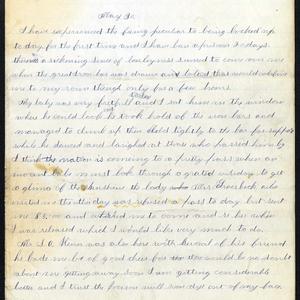 May 3d
I have experienced the feeling peculiar to being locked up
to day for the first time and I have been a prisoner 2 days.
there is a sickening sense of lonelyness seemed to come over me
when the great iron bar was drawn and bolted that would confine
me to my room though only for a few hours.
My baby was very fretful today and I sat him in the window
where he could look he took hold of the iron bars and
managed to climb up then held tightly to the bar for support
while he danced and laughed at those who passed him by
I think the nation is coming to a pretty pass when an
infant babe must look through a grated window to get
a glimpse of the sunshine the lady Mrs
visited me the other day was refused a pass to day but sent
me and wished me to come and see her when
I was released which I would like very much to do.
The was also here with several of his friend
he bade me be of good cheer for there would be no doubt
about me getting away soon I am getting considerable
better and I trust the poison will soon dry out of my back